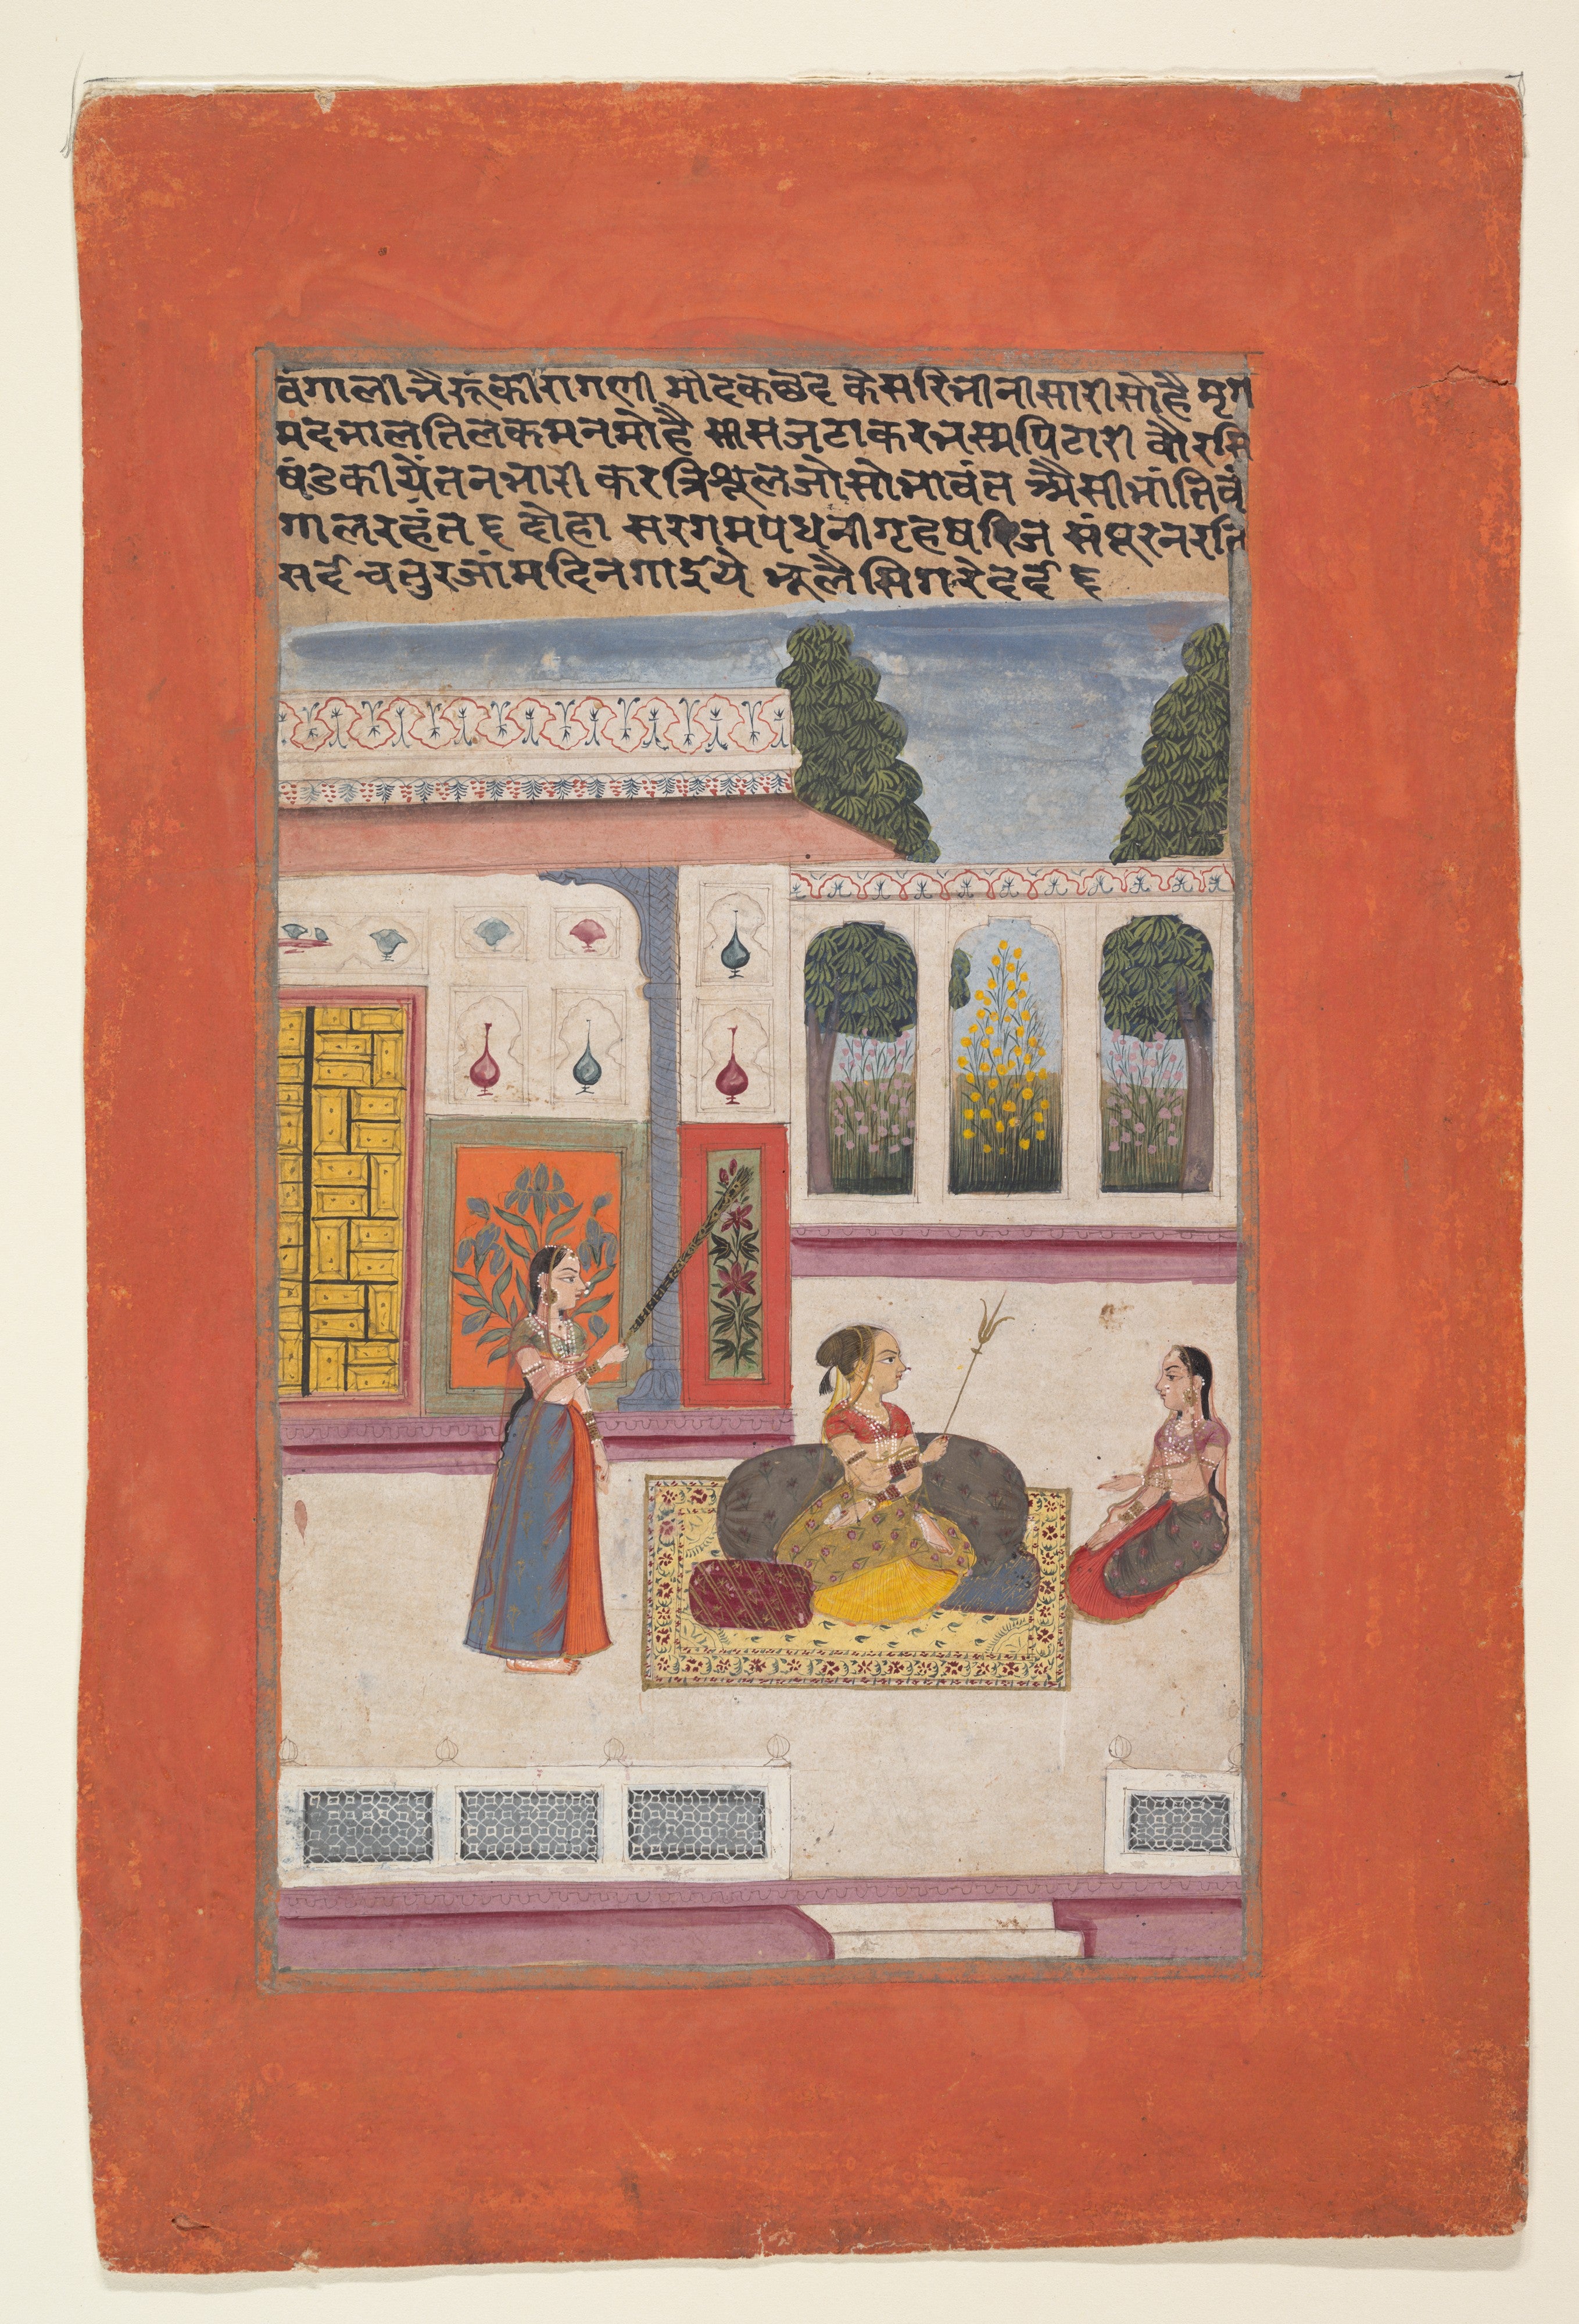 वंगाली भैरूंकी रागणी मोदक छंद केसरि भीनी सारी सोहै मृग
मद भाल तिलक मन मोहै सीस जटा कर भस्म पिटारी वौर सि
षंड कीयें तन भारी कर त्रिशूल जो सोभावंत अैसी भांति वं
गाल रहंत ६ दोहा सरगमपधनी गृह षरिज संपूरन रति
सर्द चतुर जांम दिन गाईये भूलै सिगरे दर्द ६